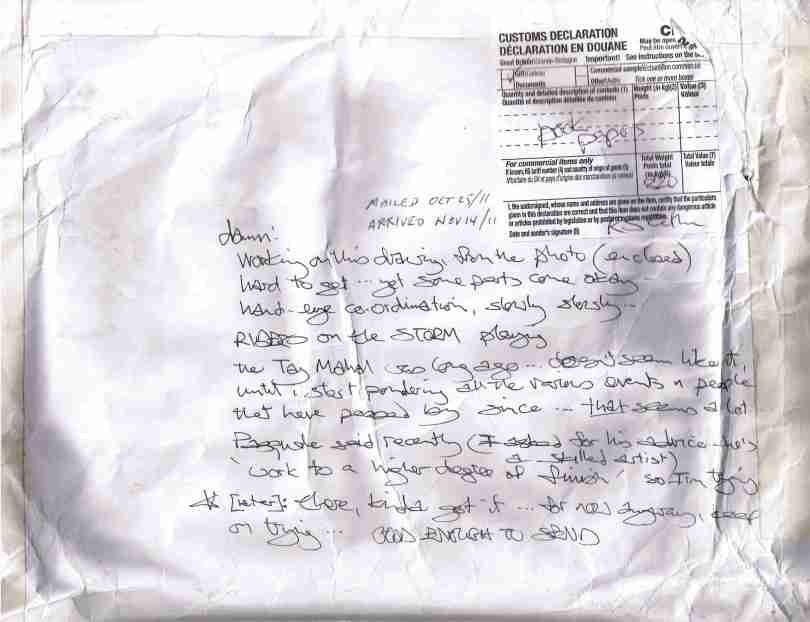 CUSTOMS DECLARATION
DÉCLARATION EN DOUANE
May be open
Peut être ouvert
Great Britain\Grande-Bretagne Important! See instructions on the
Gift\Cadeau Commercial sample\Echantillon commercial
Documents Other\Autre Tick one or more boxes
Quantity and detailed description of contents (1) Weight (in kg)(2) Value (3)
Quantité et description détaillée du contenu Poids Valeur
papers
For commercial items only Total Weight Total Value (7)
If known, HS tariff number (4) and country of origin of goods (5) Poids total Valeur totale
N°tarifaire du SH et pays d'origine des marchandises (si connus) (in kg)(6)
I, the undersigned, whose name and address are given on the item, certify that the particulars
given in this declaration are correct and that this item does not contain any dangerous article
or articles prohibited by legislation or by postal or customs regulations
Date and sender's signature (8)
MAILED OCT 25/11
ARRIVED NOV 14/11
working on this drawing, from the photo (enclosed)
hard to get ... yet some parts come okay
hand-eye co-ordination, slowly slowly...
on the STORM playing
the Taj Mahal so long ago ... doesn't seem like it,
until i start pondering all the various events n people
that have passed by since ... that seems a lot
said recently (I asked for his advice he's
a skilled artist)
'work to a higher degree of finish' so I'm trying
[later]: there, kinda got it ... for now anyway, keep
on trying ... GOOD ENOUGH TO SEND